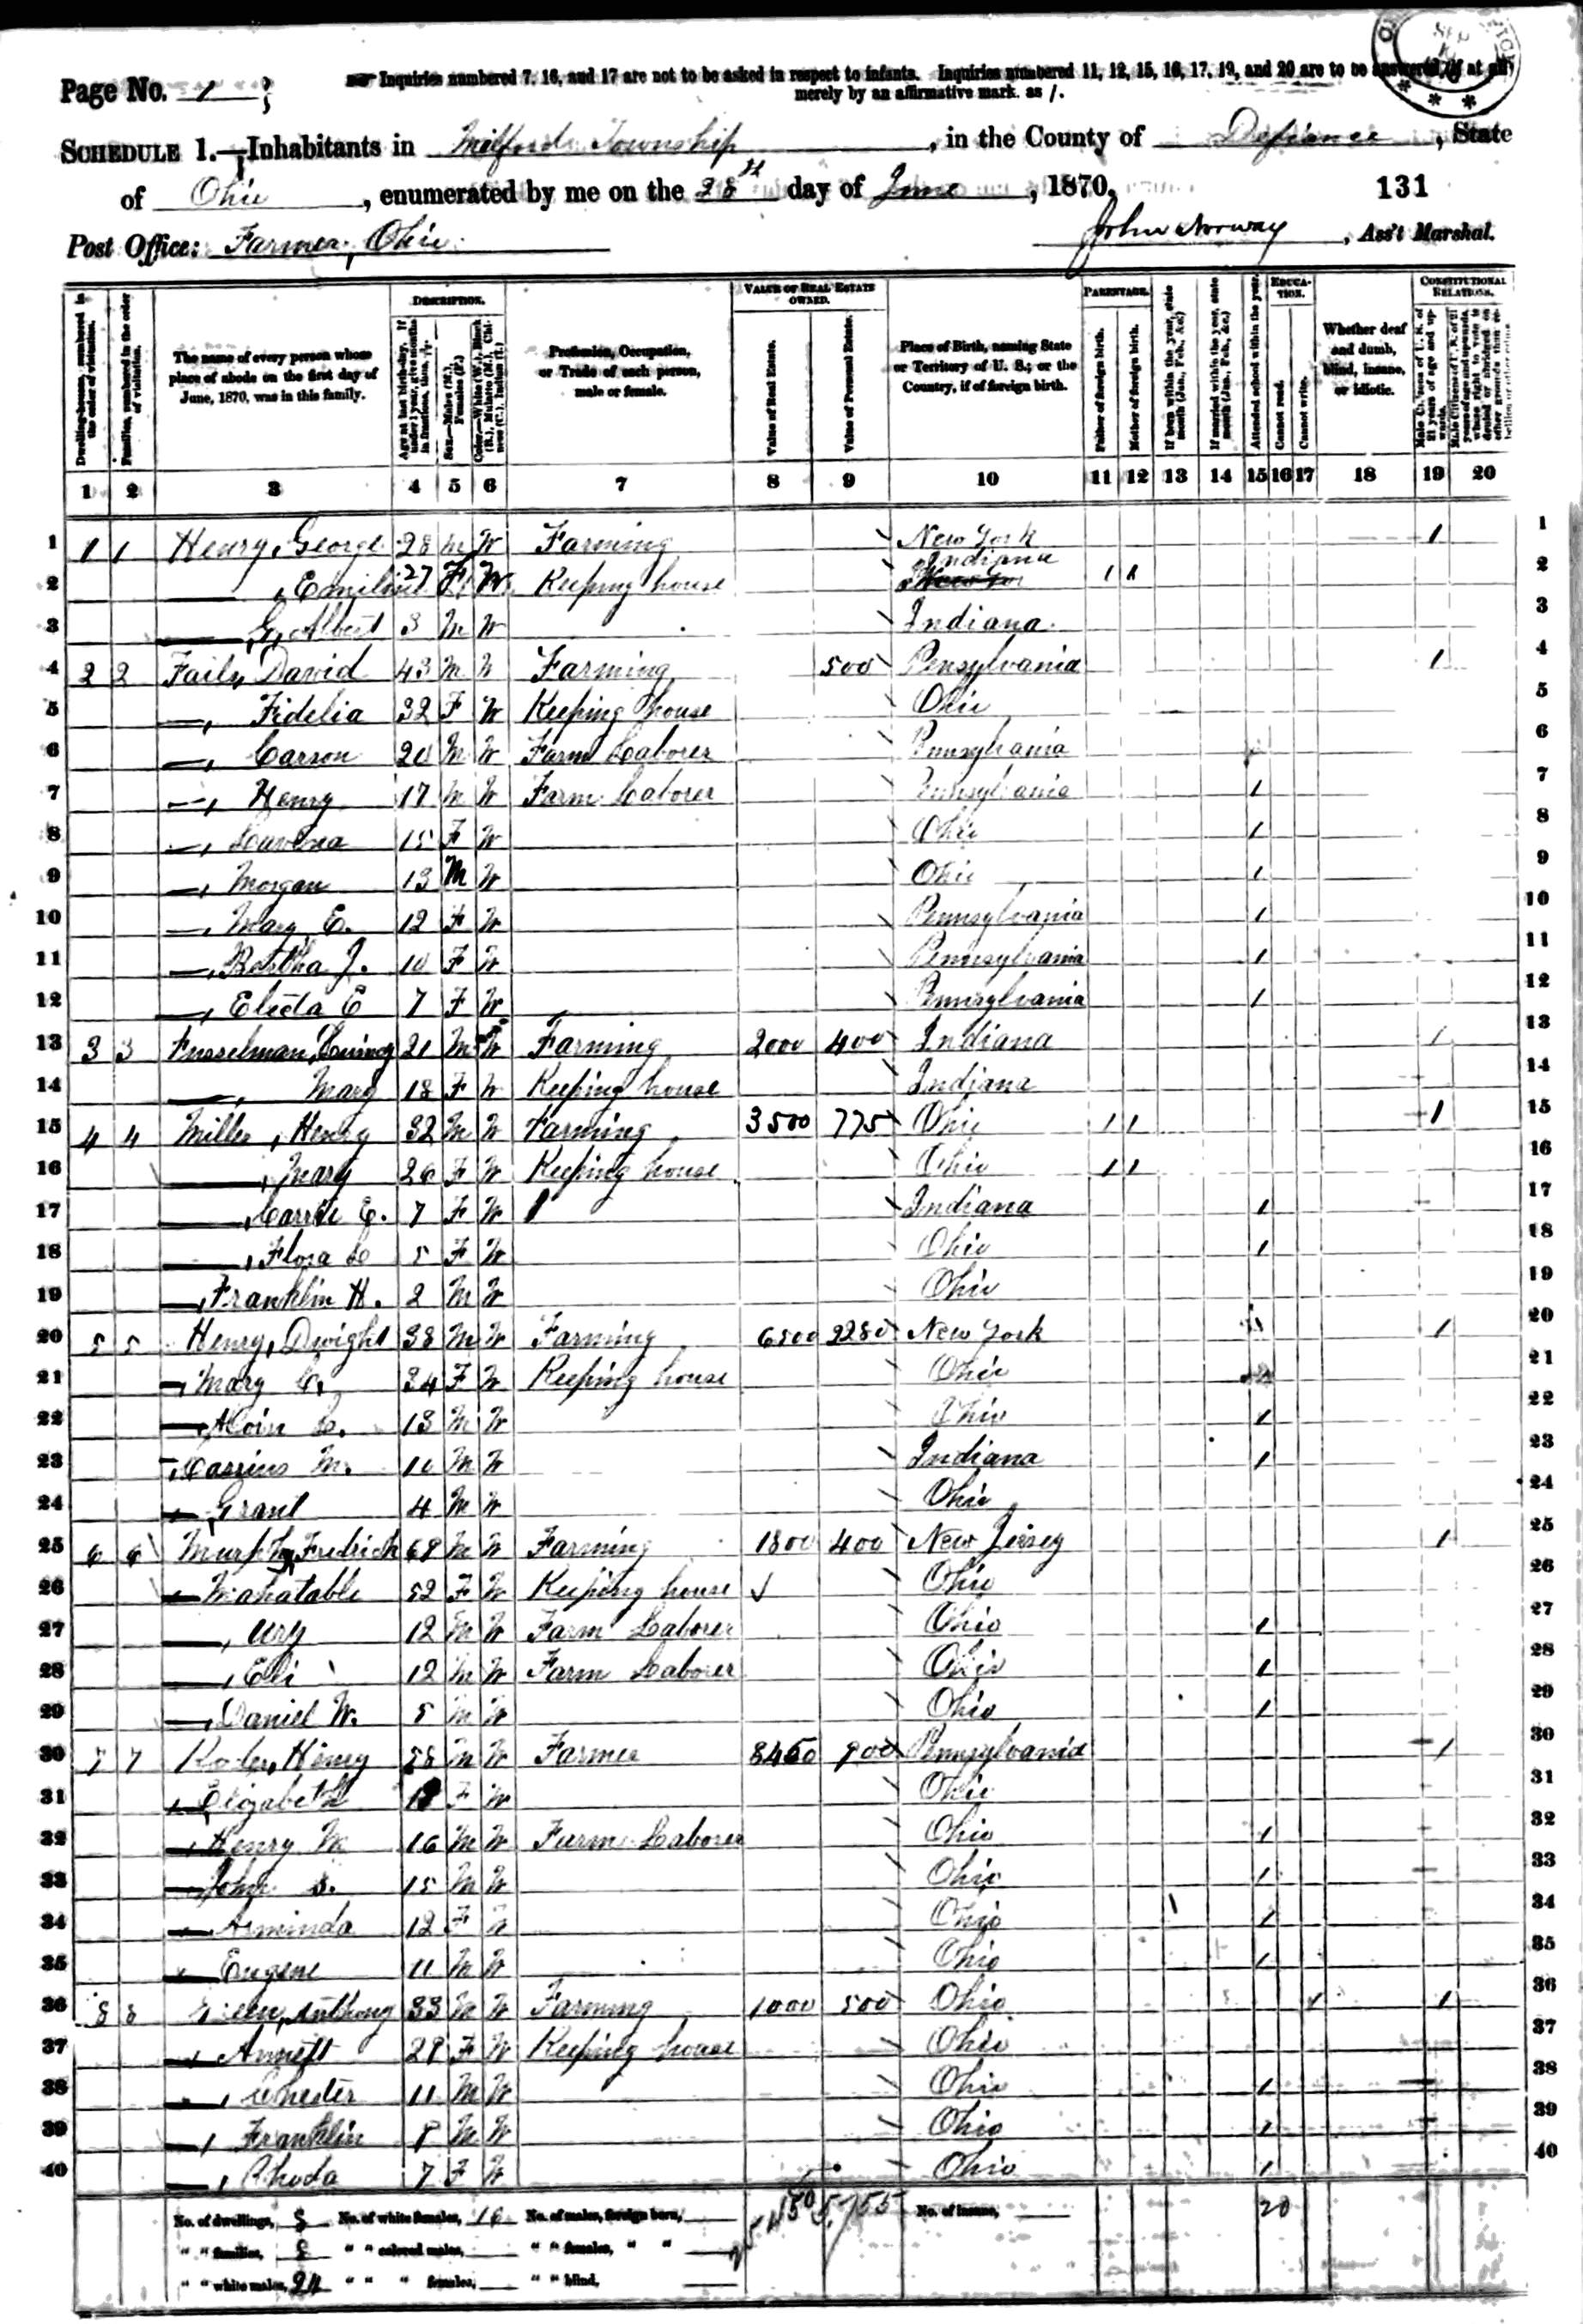 Page No. 1
Inquiries numbered 7, 16, and 17 are not to be asked in respect to infants. Inquiries numbered 11, 12, 15, 16, 17, 19, and 20 are to be answered, if at all,
merely by an affirmative mark, as /.
SCHEDULE 1.—Inhabitants in Milford Township, in the County of Defiance, State
of Ohio, enumerated by me on the 28th day of June, 1870. 131
Post Office: Farmer, Ohio. John Norway, Ass't Marshal.
Dwelling-houses, numbered in the order of visitation.
Families, numbered in the order of visitation.
The name of every person whose place of abode on the first day of June, 1870, was in this family.
DESCRIPTION.
Age at last birth-day. If under 1 year, give months in fractions, thus,
Sex.—Males (M.), Females (F.)
Color.—White (W.), Black (B.), Mulatto (M.), Chinese (C.), Indian (I.)
Profession, Occupation, or Trade of each person, male or female.
VALUE OF REAL ESTATE OWNED.
Value of Real Estate.
Value of Personal Estate.
Place of Birth, naming State or Territory of U. S.; or the Country, if of foreign birth.
PARENTAGE.
Father of foreign birth.
Mother of foreign birth.
If born within the year, state month (Jan., Feb., &c.)
If married within the year, state month (Jan., Feb., &c.)
Attended school within the year.
EDUCATION.
Cannot read.
Cannot write.
Whether deaf and dumb, blind, insane, or idiotic.
CONSTITUTIONAL RELATIONS.
Male Citizens of U. S. of 21 years of age and upwards.
Male Citizens of U. S. of 21 years of age and upwards, whose right to vote is denied or abridged on other grounds than rebellion or other crime.
1 2 3 4 5 6 7 8 9 10 11 12 13 14 15 16 17 18 19 20
1 1 1 Henry, George 28 M W Farming New York 1 1
2 —, Emiline 27 F W Keeping house Indiana 1 1 2
3 — G, Albert 3 M W Indiana 3
4 2 2 Faily, David 43 M W Farming 500 Pensylvania 1 4
5 —, Fidelia 32 F W Keeping house Ohio 5
6 —, Carson 20 M W Farm Laborer Pennsylvania 6
7 —, Henry 17 M W Farm Laborer Pennsylvania 1 7
8 —, Luvina 15 F W Ohio 1 8
9 —, Morgan 13 M W Ohio 1 9
10 —, Mary E. 12 F W Pennsylvania 1 10
11 —, Bertha J. 10 F W Pennsylvania 1 11
12 —, Electa E 7 F W Pennsylvania 1 12
13 3 3 Fusselman, Quincy 21 M W Farming 2000 400 Indiana 1 13
14 —, Mary 18 F W Keeping house Indiana 14
15 4 4 Miller, Henry 32 M W Farming 3500 775 Ohio 1 1 1 15
16 —, Mary 26 F W Keeping house Ohio 1 1 16
17 —, Carrie E. 7 F W Indiana 1 17
18 —, Flora 5 F W Ohio 1 18
19 —, Franklin H. 2 M W Ohio 19
20 5 5 Henry, Dwight 38 M W Farming 6500 2280 New York 1 20
21 —, Mary C. 34 F W Keeping house Ohio 21
22 —, Alvin L. 13 M W Ohio 1 22
23 —, Cassius M. 10 M W Indiana 1 23
24 — Grant 4 M W Ohio 24
25 6 6 Murphy, Fredrick 69 M W Farming 1800 400 New Jersey 1 25
26 — Mahatable 52 F W Keeping house Ohio 26
27 —, Ury 12 M W Farm Laborer Ohio 1 27
28 —, Eli 12 M W Farm Laborer Ohio 1 28
29 —, Daniel W. 5 M W Ohio 1 29
30 7 7 Henry 58 M W Farmer 8450 900 Pennsylvania 1 30
31 —, Elizabeth F W Ohio 31
32 —, Henry M 16 M W Farm Laborer Ohio 1 32
33 — John S. 15 M W Ohio 1 33
34 — Arminda 12 F W Ohio 1 34
35 — Eugene 11 M W Ohio 1 35
36 8 8 Green, Anthony 33 M W Farming 1000 500 Ohio 1 1 36
37 —, Annett 29 F W Keeping house Ohio 37
38 —, Chester 11 M W Ohio 1 38
39 —, Franklin 8 M W Ohio 1 39
40 —, Rhoda 7 F W Ohio 1 40
No. of dwellings, 8 No. of white females, 16 No. of males, foreign born, 5,755 No. of insane, 20
" " families, 8 " " colored males, " " females, " "
" " white males, 24 " " " females, " " blind,